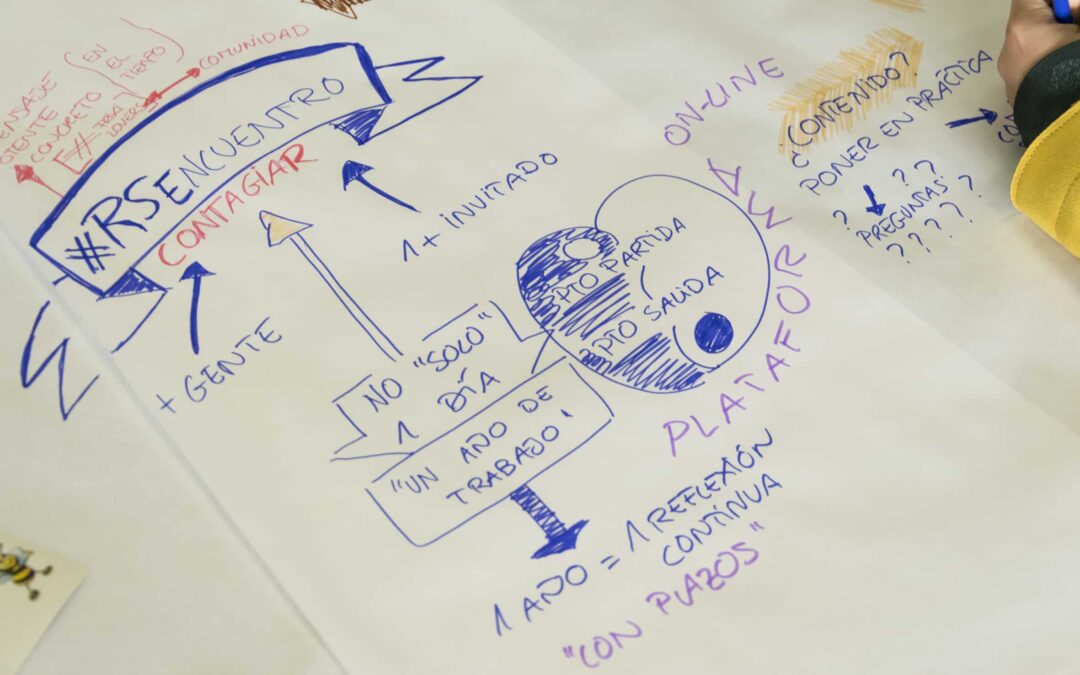 EN
EL
TIEMPO
COMUNIDAD
CONCRETO
#RSENCUENTRO
CONTAGIAR
1 + INVITADO
+ GENTE
NO "SOLO"
1 DÍA
"UN AÑO DE
TRABAJO"
1 AÑO = 1 REFLEXIÓN
CONTÍNUA
"CON PLAZOS"
PTO PARTIDA
PTO SALIDA
PLATAFORMA
ON-LINE
¿CONTENIDO?
PONER EN PRÁCTICA
? ? ?
PREGUNTAS ?
? ? ? ?